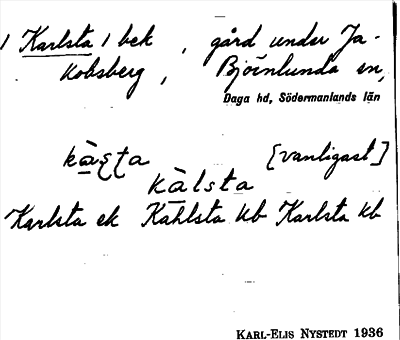 / Karlsta / bek , gård under Ja-
kobsberg , Björnlunda sn,
Daga hd, Södermanlands län
kàsta [vanligast]
kàlsta
Karlsta ek Kahlsta kb Karlsta kb
KARL-ELIS NYSTEDT 1936